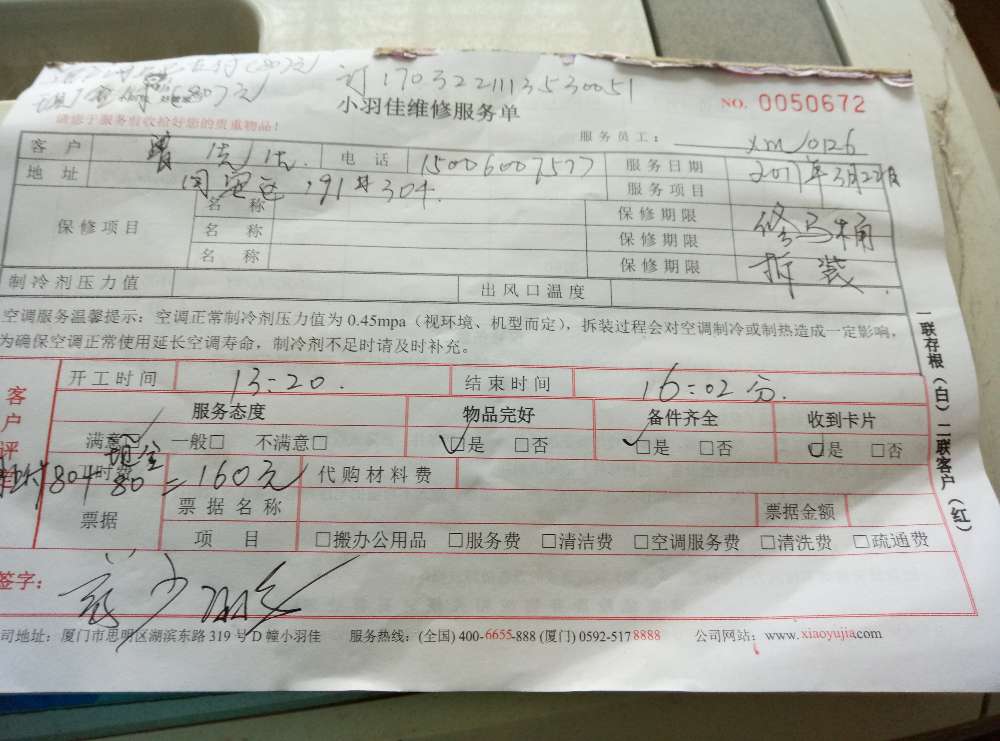 订1703221113530051
小羽佳维修服务单 NO. 0050672
请您于服务前收拾好您的贵重物品！
服务员工： xm/0126
客户 电话 15006007577 服务日期 2017年3月22日
地址 191# 304. 服务项目 修马桶
保修项目 名称 保修期限 拆装.
名称 保修期限
名称 保修期限
制冷剂压力值 出风口温度
空调服务温馨提示：空调正常制冷剂压力值为 0.45mpa（视环境、机型而定），拆装过程会对空调制冷或制热造成一定影响，
为确保空调正常使用延长空调寿命，制冷剂不足时请及时补充。
客户评 开工时间 13:20. 结束时间 16:02分.
服务态度 物品完好 备件齐全 收到卡片
满意 一般□ 不满意□ □是 □否 □是 □否 □是 □否
现金
工时费 80+80=160元 代购材料费
票据 票据名称 票据金额
项目 □搬办公用品 □服务费 □清洁费 □空调服务费 □清洗费 □疏通费
签字：
司地址：厦门市思明区湖滨东路 319 号 D 幢小羽佳 服务热线：(全国) 400-6655-888 (厦门) 0592-5178888 公司网站：www.xiaoyujia.com
一联存根（白）二联客户（红）